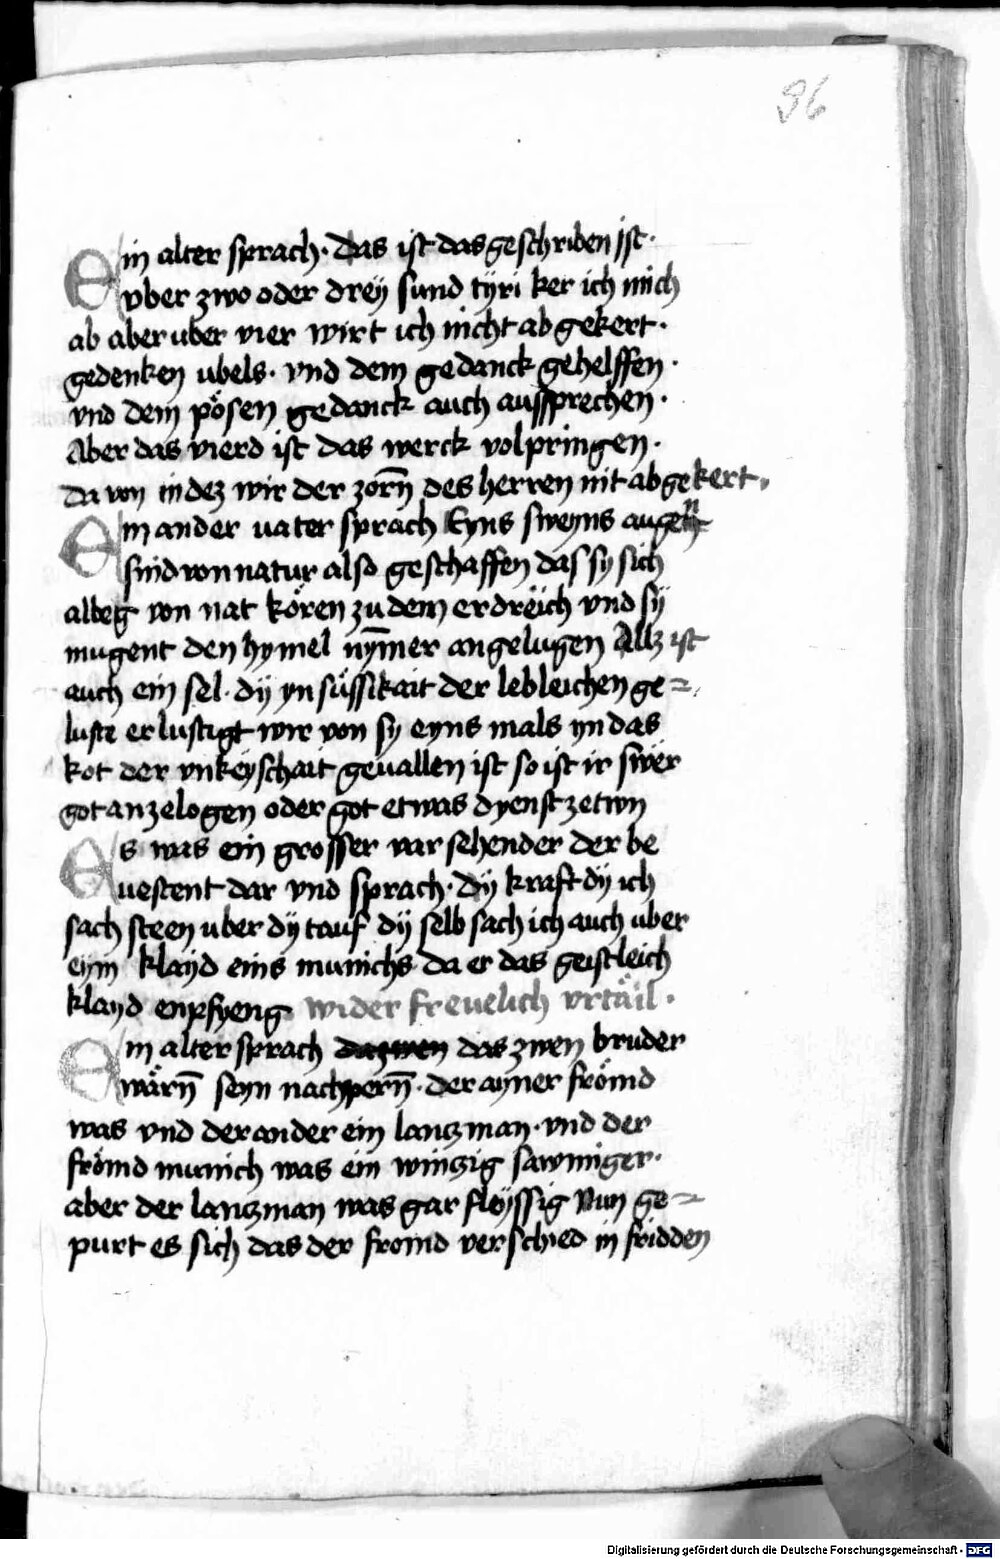 96
Ein alter sprach · das ist das geschriben ist ·
vber zwo oder dreÿ sund tÿri ker ich mich
ab aber uber vier wirt ich nicht ab gekert ·
gedenken ubels · vnd dem gedanck gehelffen ·
vnd dem pösen gedanck auch aussprechen ·
Aber das vierd ist das werck volpringen ·
da von in dez wir der zorn̄ des herren nit ab gekert ·
Ein ander uater sprach Eyns sweyns augen
sind von natur also geschaffen das sy sich
albeg von nat kören zu dem erdreich vnd sÿ
mugent den hymel nym̄er angelugen Allz ist
auch ein sel · dÿ yn süssikait der lebleichen ge=
luste erlustigt wir von sy eyns mals yn das
kot der vnkeyschait geuallen ist so ist ir swer
got anzelogen oder got etwas dyenst zetwn
Es was ein grosser var sehender der be
uestent dar vnd sprach · Dÿ kraft dÿ ich
sach steen uber dÿ tauf dÿ selb sach ich auch uber
eym klayd eins munichs da er das geistleich
klayd enpfyeng wider freuelich vrtäil ·
Ein alter sprach das zwen bruder
wärn̄ seyn nachpern̄ · der ayner frömd
was vnd der ander ein lantzman · vnd der
frömd munich was ein wintzig sawmiger ·
aber der lantzman was gar fleyssig Nun ge=
purt es sich das der fromd verschied in fridden
Digitalisierung gefördert durch die Deutsche Forschungsgemeinschaft - DFG